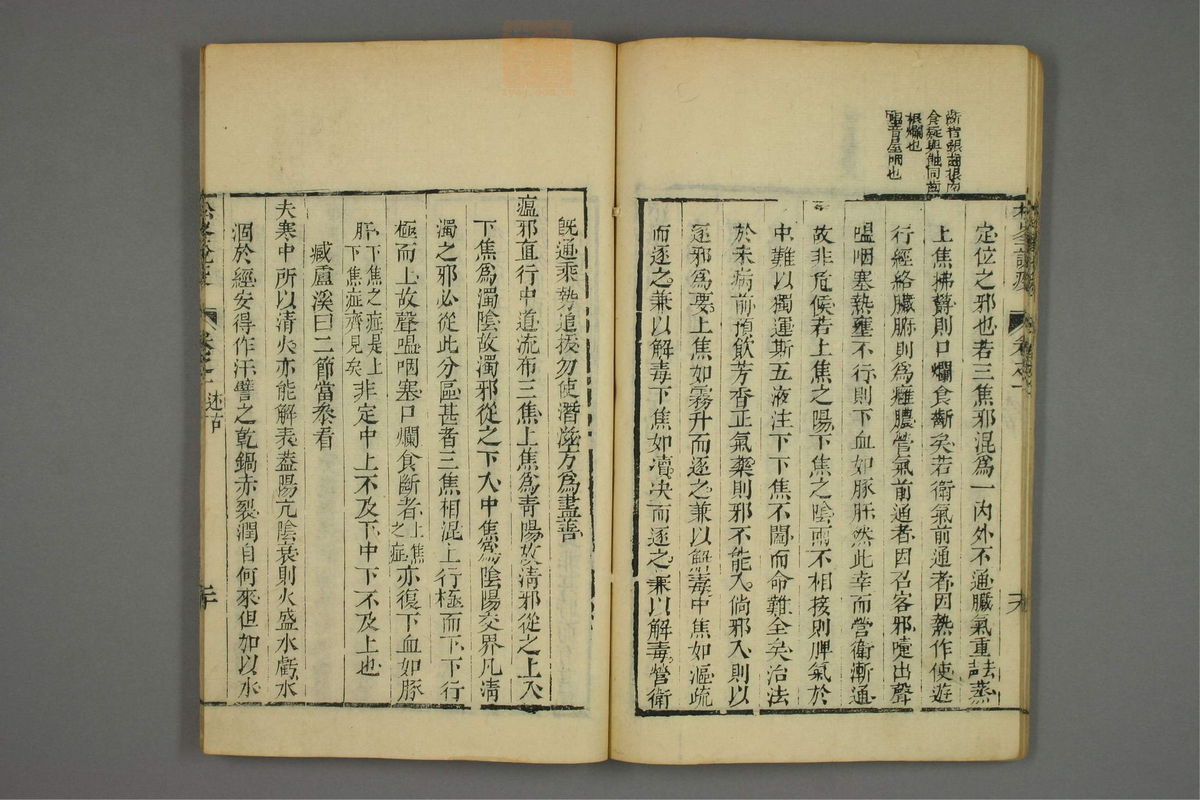 齗音銀齒根肉
食疑與蝕同齒
根爛也
嗢音屋咽也
定位之邪也若三焦邪混爲一內外不通臟氣重蒸
上焦拂鬱則口爛食齗矣若衛氣前通者因熱作使遊
行經絡臟腑則爲癰膿營氣前通者因召客邪嚔出聲
嗢咽塞熱壅不行則下血如豚肝然此幸而營衛漸通
故非危候若上焦之陽下焦之陰兩不相接則脾氣於
中難以獨運斯五液注下下焦不闔而命難全矣治法
於未病前預飲芳香正氣藥則邪不能入倘邪入則以
逐邪爲要上焦如霧升而逐之兼以解毒中焦如漚疏
逐之兼以解毒下焦如瀆决而逐之兼以解毒營衛
旣通乘勢追拔勿使潛滋方爲盡善
瘟邪直行中道流布三焦上焦爲靑陽故淸邪從之上入
下焦爲濁陰故濁邪從之下入中焦爲陰陽交界凡淸
濁之邪必從此分區甚者三焦相混上行極而下下行
極而上故聲嗢咽塞口爛食斷者上焦之症亦復下血如豚
肝下焦之症是上下焦症齊見矣非定中上不及下中下不及上也
臧盧溪曰二節當叅看
夫寒中所以淸火亦能解表葢陽亢陰衰則火盛水虧水
涸於經安得作汗譬之乾鍋赤裂潤自何來但如以水
述古